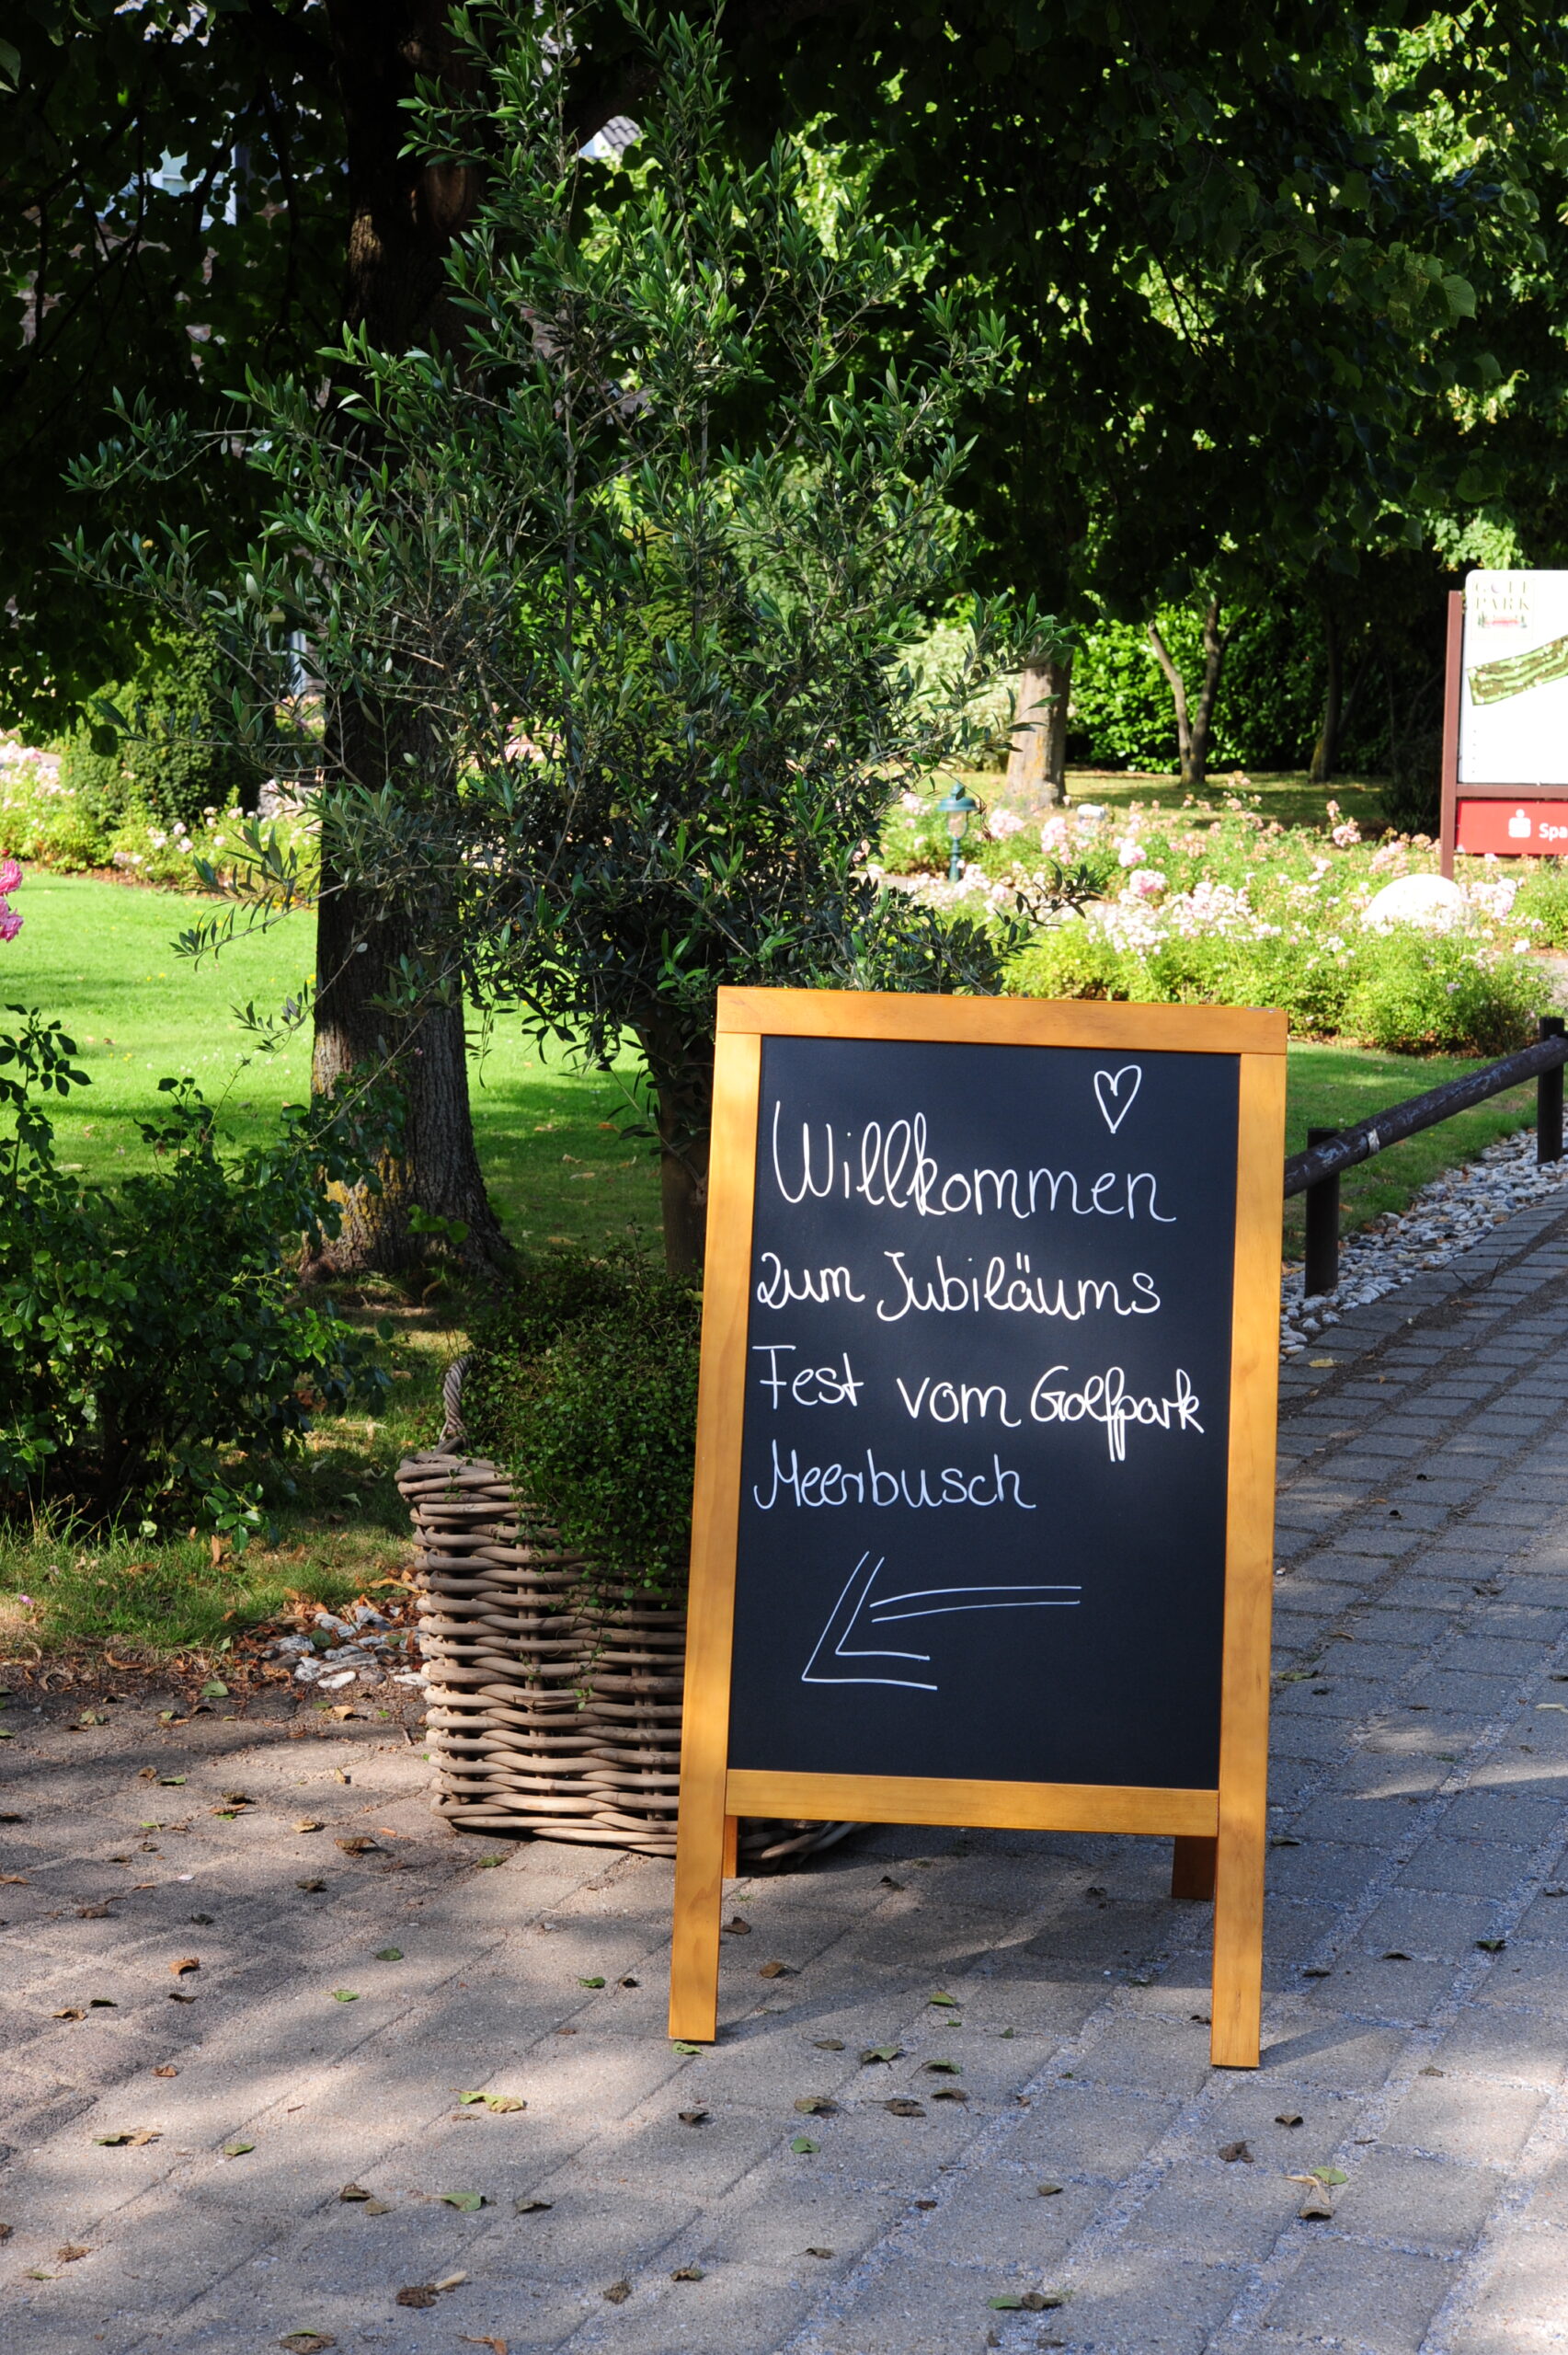 Willkommen
zum Jubiläums
Fest vom Golfpark
Meerbusch
GOLF
PARK
Spa